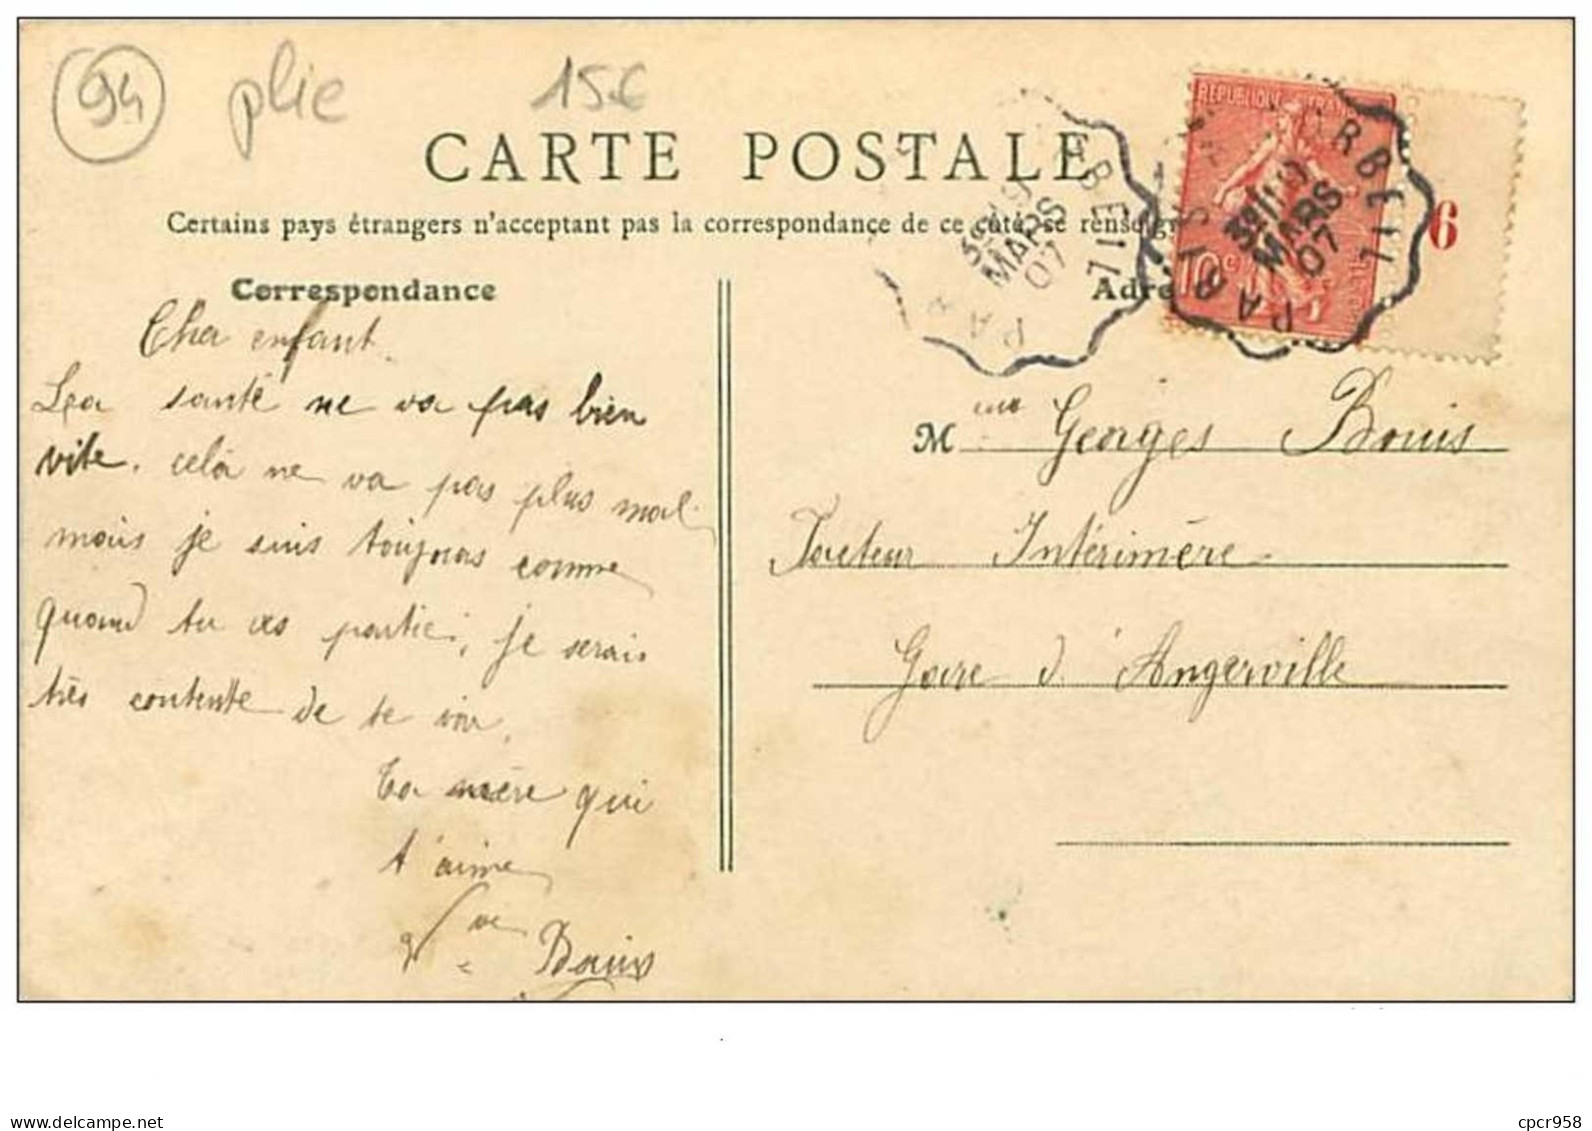 94 plie 15€
CARTE POSTALE
Certains pays étrangers n'acceptant pas la correspondance de ce côté, se renseign
RÉPUBLIQUE FRAN
10c
CORBEIL
3e 10
MARS
07
PARIS
BEIL
3e
MARS
07
PA
6
Correspondance
Adre
Cher enfant.
La santé ne va pas bien
vite. cela ne va pas plus mal
mais je suis toujours comme
quand tu es parti, je serais
très contente de te voir.
Ta mère qui
t'aime
Vve Bouis
M Georges Bouis
Facteur Intérimère
Gare d'Angerville
delcampe.net
cpcr958